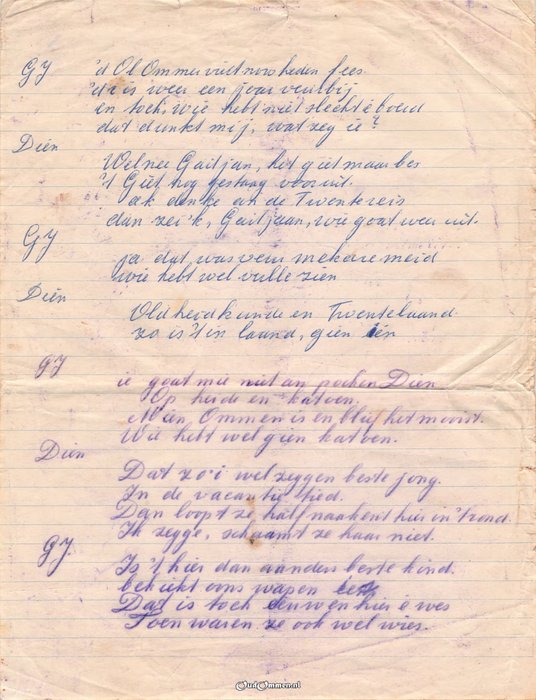 GJ 'd Ol Ommer viert now heden fees
'd is weer een joar veurbij
en toch, wie hebt niet slecht eboerd
dat dunkt mij, wat zeg ie?
Dien
Welnee Gaitjan, het giet maar bes
't Giet nog gestaag vooruit.
ak denke an de Twentereis
dan zei'k, Gaitjaan, wie goat weer uit.
GJ
ja dat was veur mekare meid
wie hebt wel vulle zien
Dien
Oldheidkunde en Twentelaand
zo is 't in laand, gien ién
GJ
ie goat mie niet an pochen Dien
Op heide en katoen.
Mien Ommen is en blief het mooist.
Wie hebt wel gien katoen.
Dien
Dat zo'i wel zeggen beste jong.
In de vacantie tied.
Dan loopt ze half naakent hier in 't rond.
Ik zegge, schaamt ze haar niet.
GJ.
Is 't hier dan aanders beste kind.
bekiekt ons wapen
Dat is toch eeuwen hier e wes
Toen waren ze ook wel wies.
OudOmmen.nl